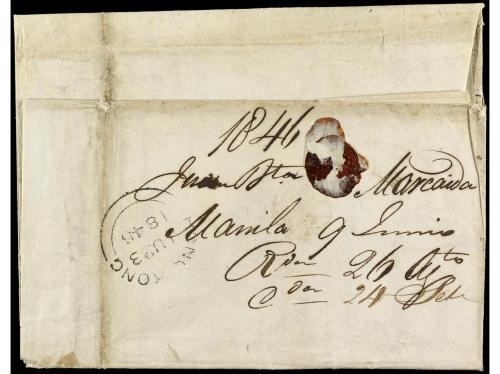 1846
Juan Bta Marcaida
Manila 9 Junio
Rda 26 Agto
Cda 24 Sbe
KONG
1846